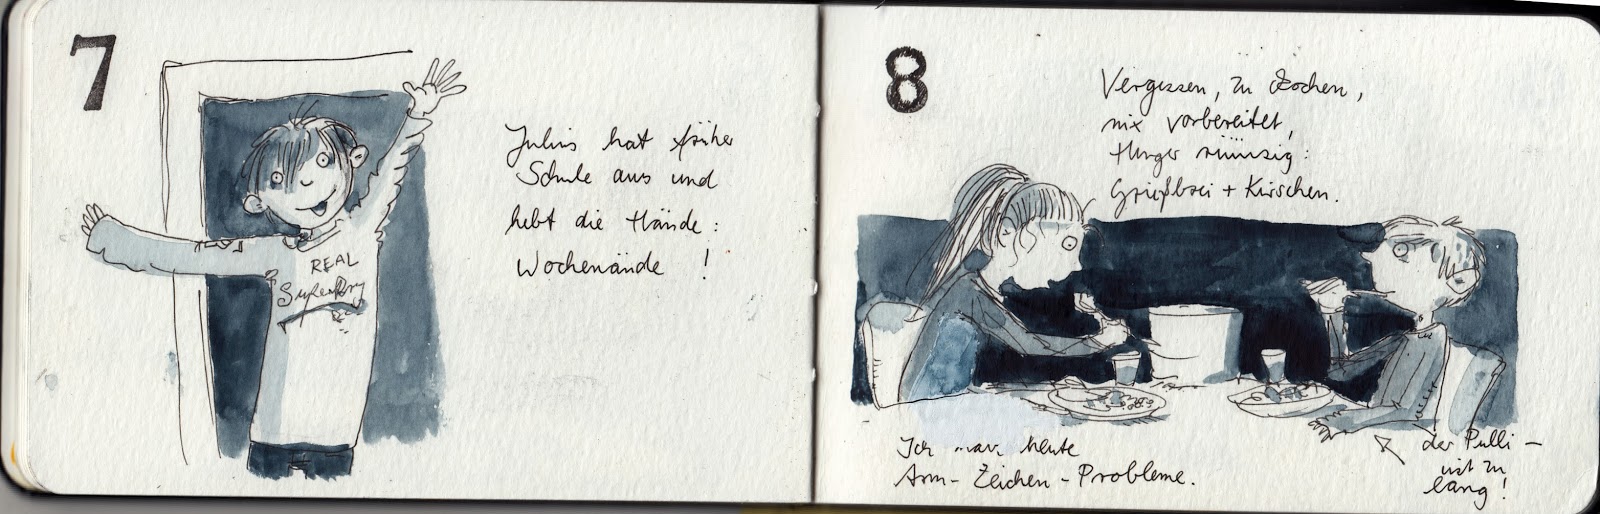 7
REAL
Julius hat früher
Schule aus und
hebt die Hände:
Wochenände !
8
Vergessen, zu Kochen,
nix vorbereitet,
Hunger
Grießbrei + Kirschen.
Ich heute
Arm-Zeichen-Probleme.
der Pulli –
ist zu
lang!